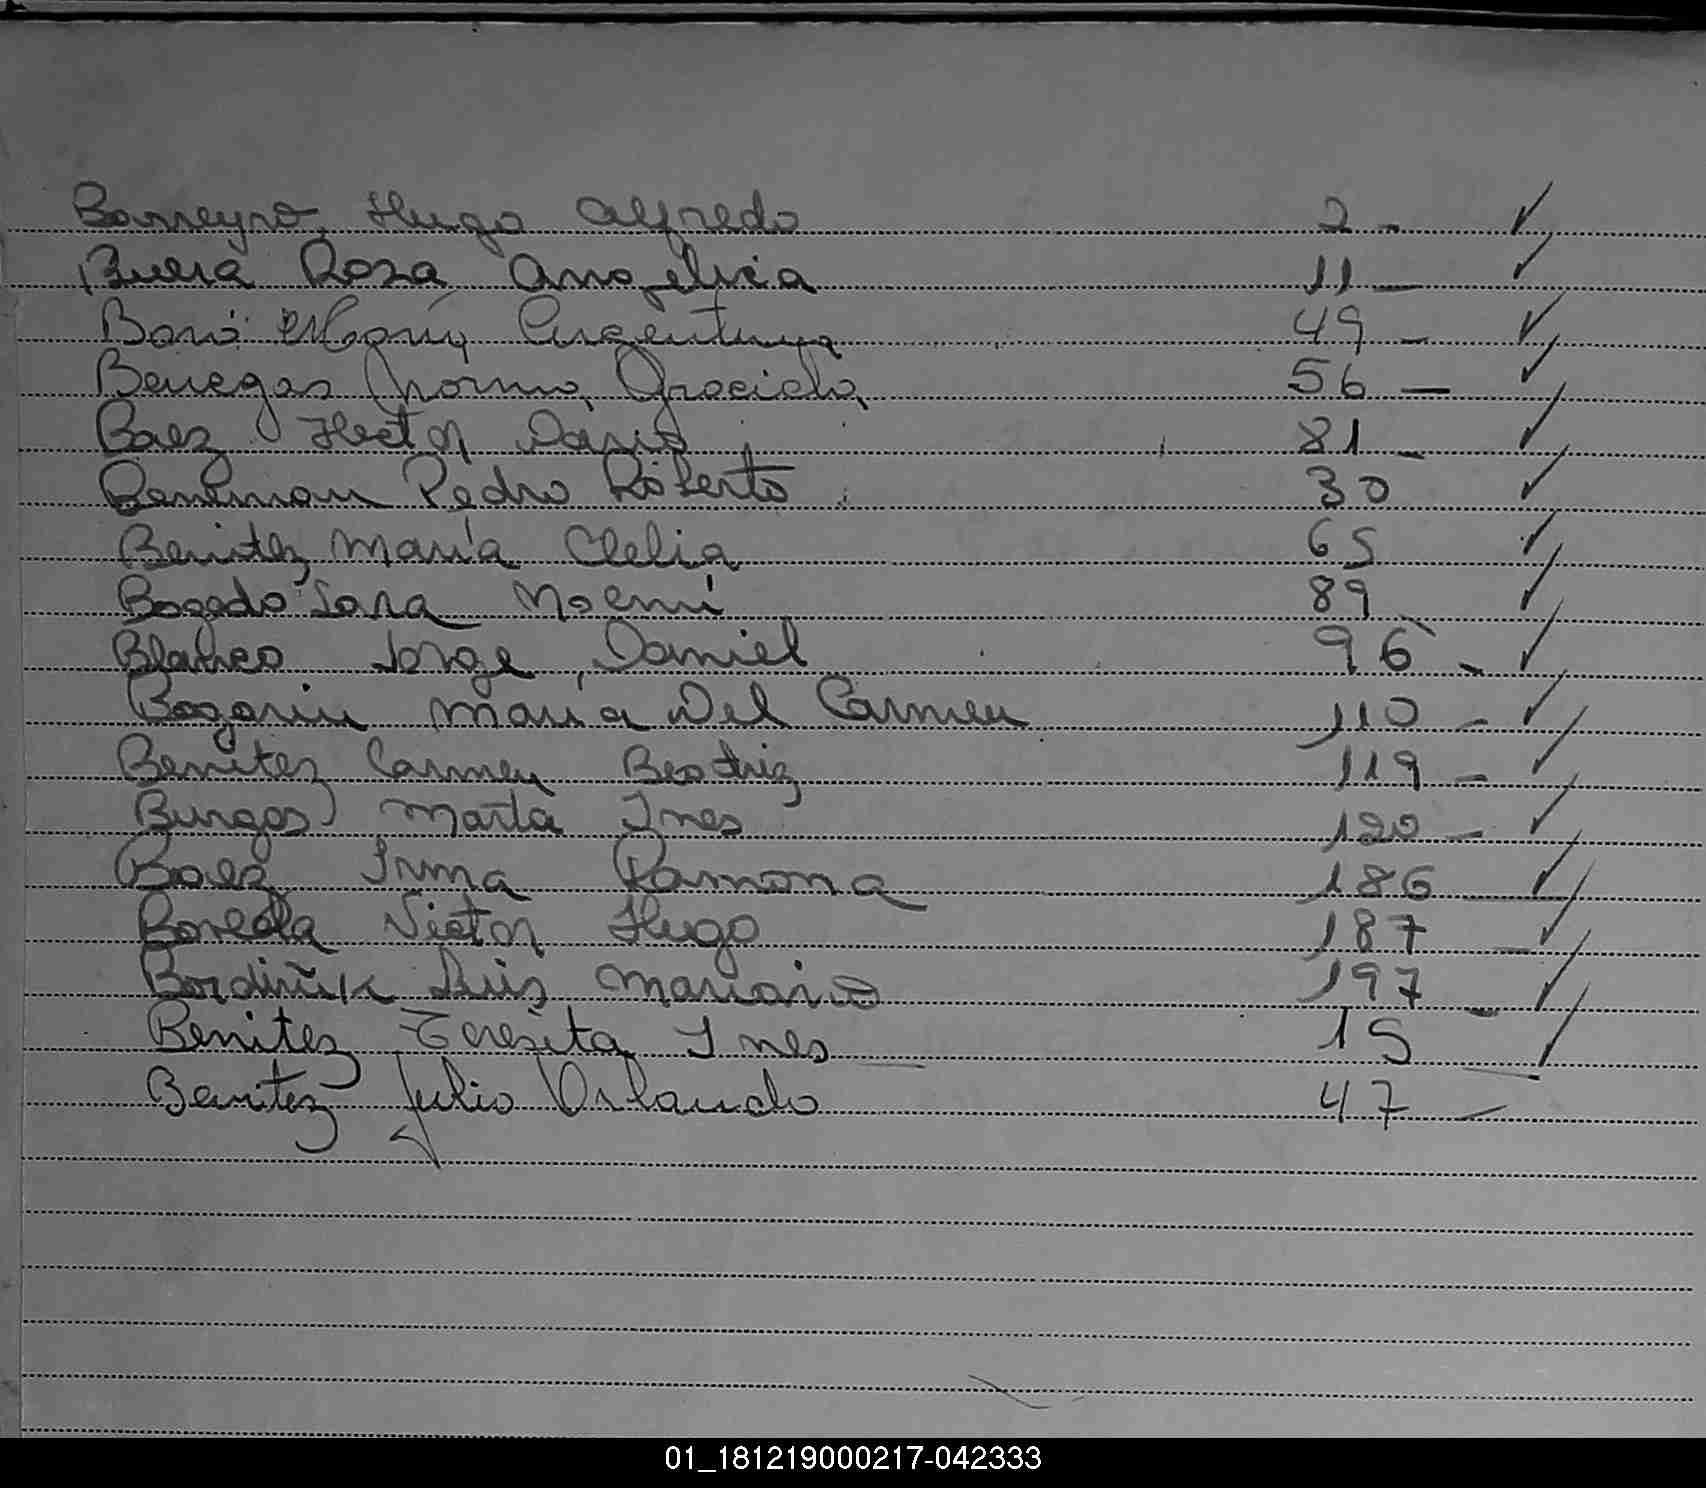 Barreyro, Hugo Alfredo 2 -
Buera Rosa Angélica 11 -
María Argentina 49 -
Benegas Norma Graciela 56 -
Baez Hector Dario 81 -
Pedro Roberto 30
Benitez María Clelia 65
Bogado Sara Noemí 89
Blanco Jorge Daniel 96 -
Bogarin María Del Carmen 110 -
Benitez Carmen Beatriz 119 -
Burgos Marta Ines 120 -
Baez Irma Ramona 186 -
Víctor Hugo 187 -
Luis Mariano 197 -
Benitez Teresita Ines 15 -
Benitez Julio Orlando 47 -
01_181219000217-042333